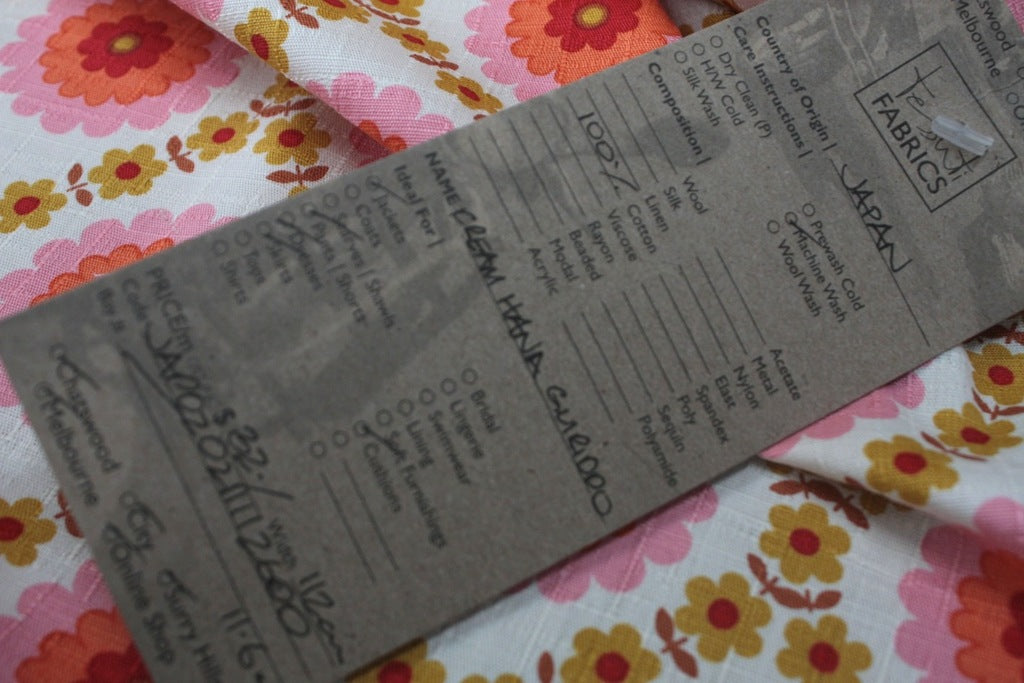 Tessuti
FABRICS
Melbourne
Country of Origin | JAPAN
Care Instructions |
Dry Clean (P)
H/W Cold
Silk Wash
Prewash Cold
Machine Wash
Wool Wash
Composition |
Wool
Silk
Linen
100% Cotton
Viscose
Rayon
Beaded
Modal
Acrylic
Acetate
Metal
Nylon
Elast
Spandex
Poly
Sequin
Polyamide
NAME CREAM HANA GUEIDDO
Ideal For |
Jackets
Coats
Scarves | Shawls
Pants | Shorts
Dresses
Skirts
Tops
Shirts
Bridal
Lingerie
Swimwear
Lining
Soft Furnishings
Cushion
PRICE/m $32.- Width 112cm
Code JAP020211112600
Buy it
Chatswood
Melbourne
City
Online Shop